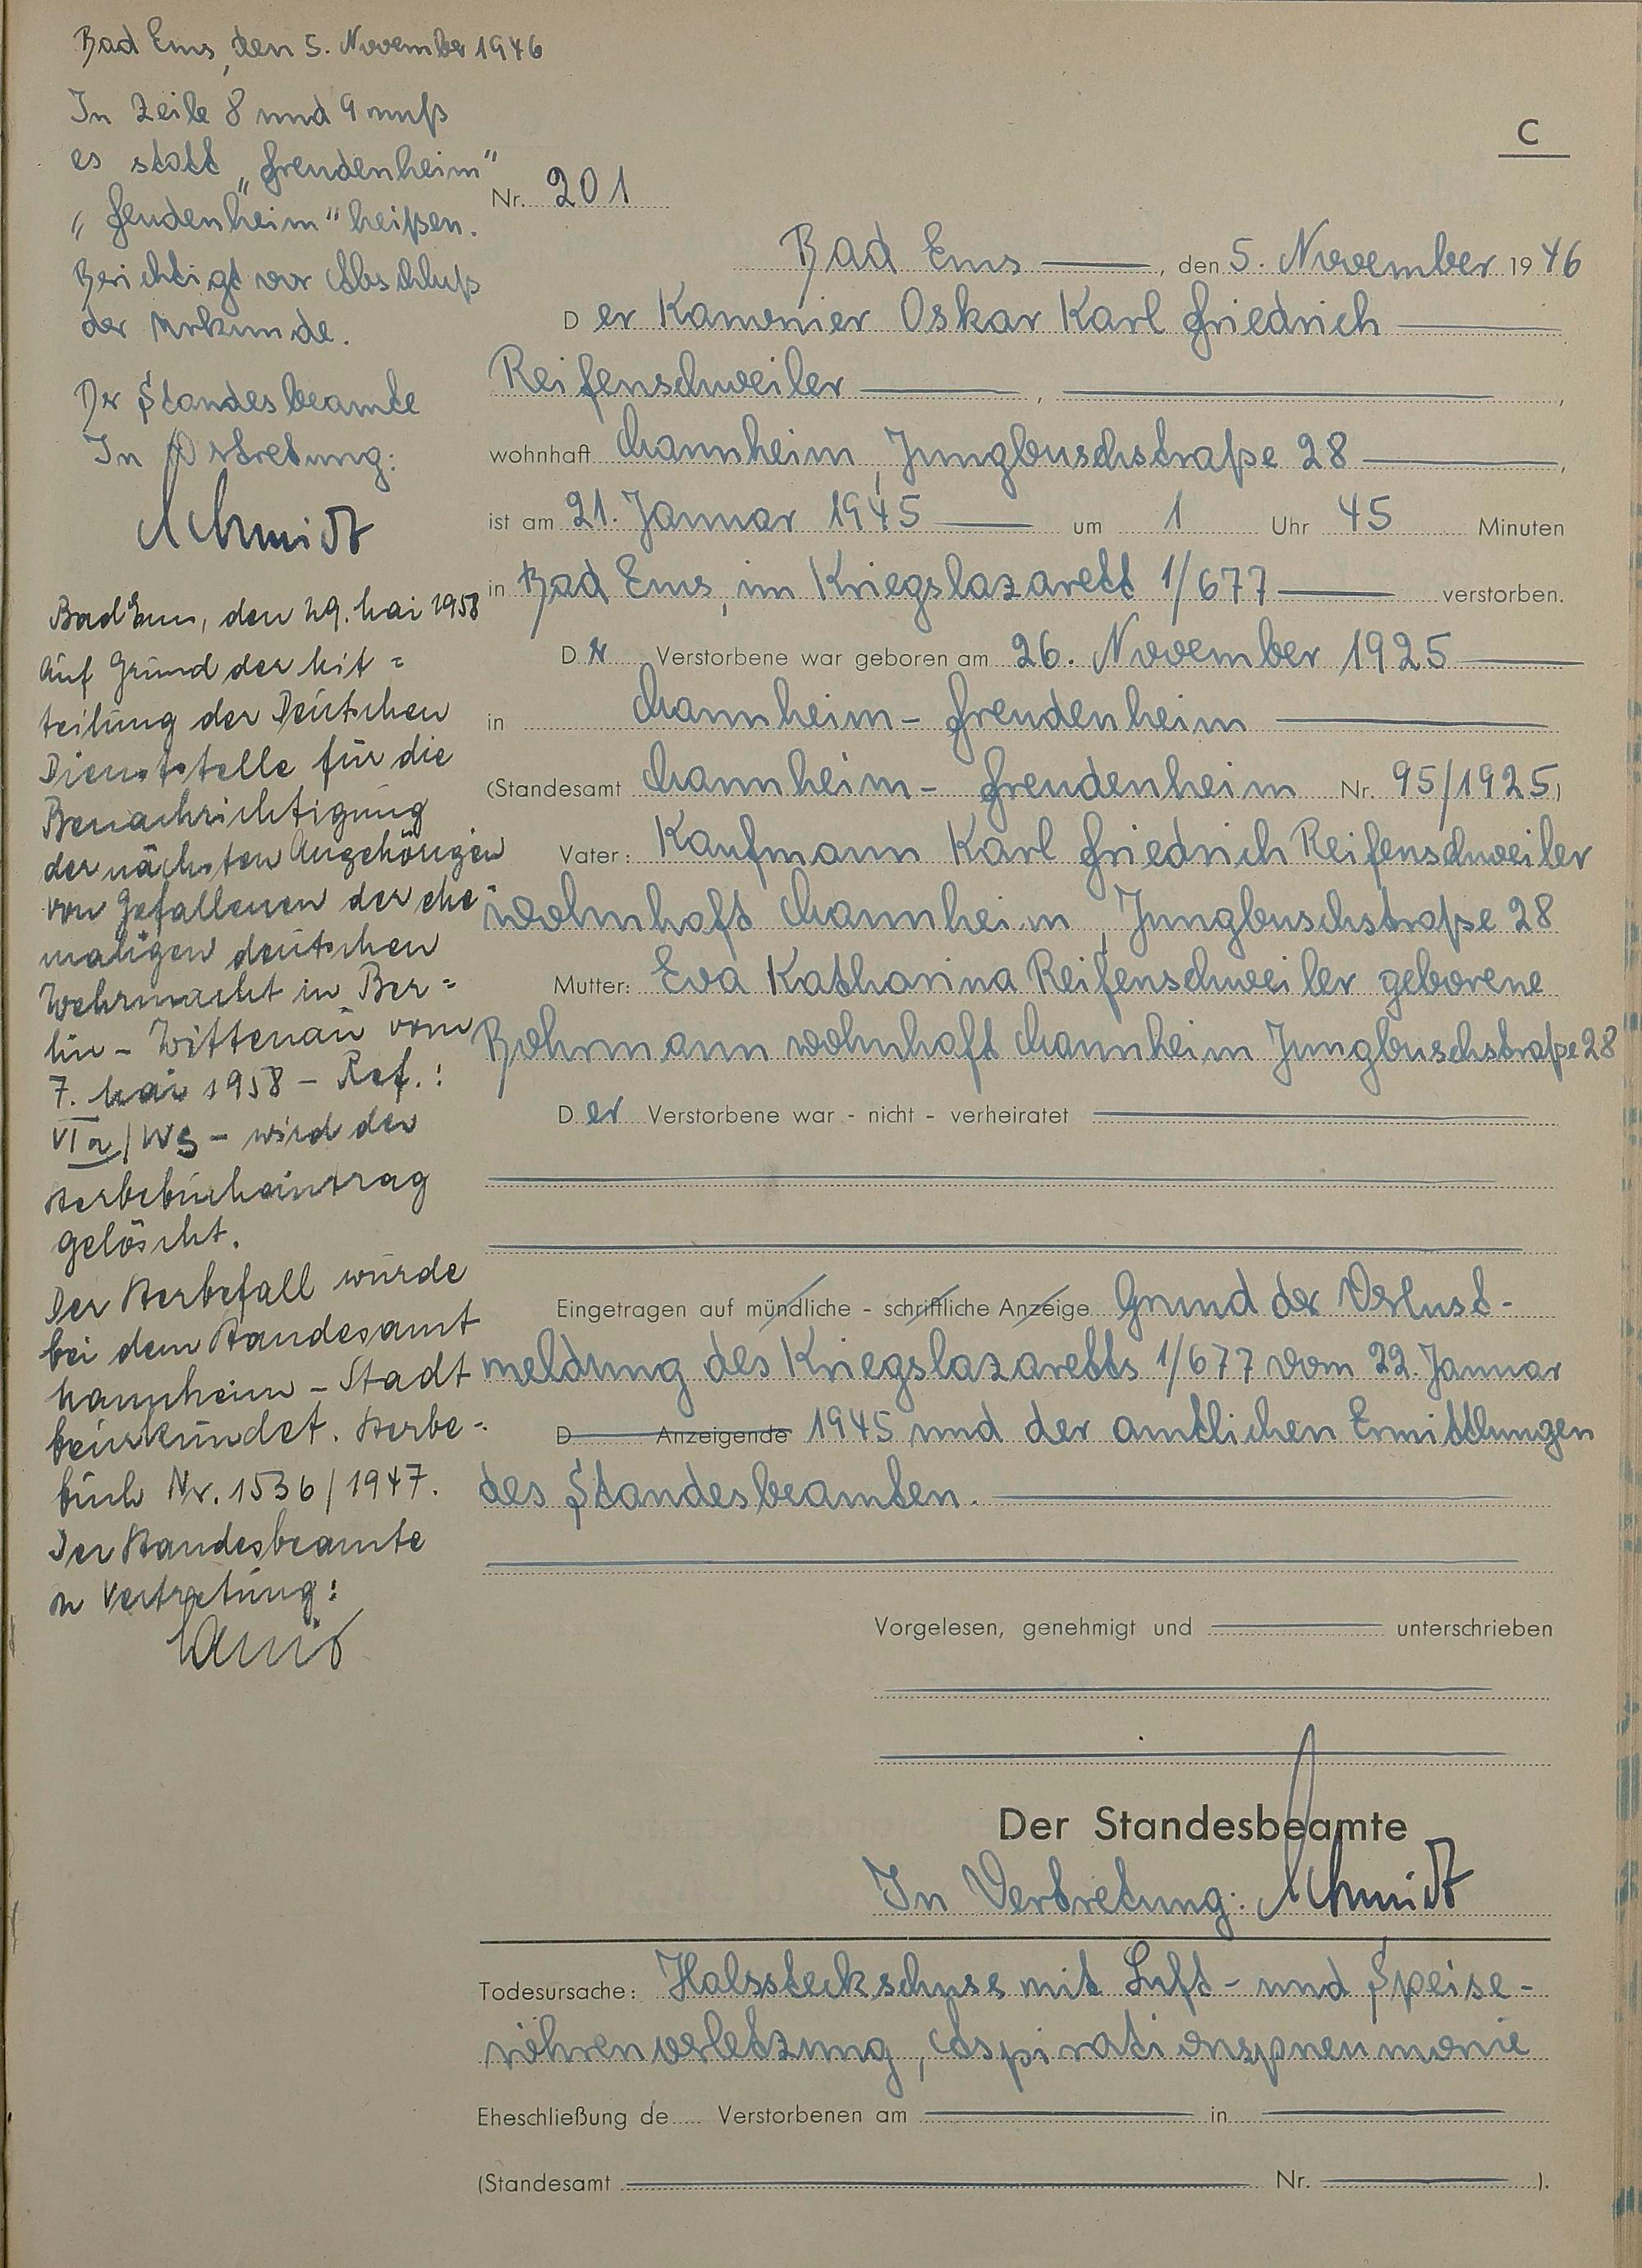 Bad Ems, den 5. November 1946
In Zeile 8 und 9 muß
es statt „Freudenheim"
„Feudenheim" heißen.
Berichtigt vor Abschluß
der Urkunde.
Der Standesbeamte
In Vertretung:
Schmidt
Bad Ems, den 29. Mai 1958
Auf Grund der Mit=
teilung der Deutschen
Dienststelle für die
Benachrichtigung
der nächsten Angehörigen
von Gefallenen der ehe=
maligen deutschen
Wehrmacht in Ber=
lin - Wittenau vom
7. Mai 1958 - Ref.:
VI a/WS - wird der
Sterbebucheintrag
gelöscht.
Der Sterbefall wurde
bei dem Standesamt
Mannheim - Stadt
beurkundet. Sterbe=
buch Nr. 1536/1947.
Der Standesbeamte
In Vertretung:
C
Nr. 201
Bad Ems, den 5. November 1946
Der Kanonier Oskar Karl Friedrich
Reifenschweiler,
wohnhaft Mannheim, Jungbuschstraße 28,
ist am 21. Januar 1945 um 1 Uhr 45 Minuten
in Bad Ems, im Kriegslazarett 1/677 verstorben.
Der Verstorbene war geboren am 26. November 1925
in Mannheim - Freudenheim
(Standesamt Mannheim - Freudenheim Nr. 95/1925)
Vater: Kaufmann Karl Friedrich Reifenschweiler
wohnhaft Mannheim, Jungbuschstraße 28
Mutter: Eva Katharina Reifenschweiler geborene
Bohrmann wohnhaft Mannheim Jungbuschstraße 28
Der Verstorbene war - nicht - verheiratet
Eingetragen auf mündliche - schriftliche Anzeige Grund der Verlust-
meldung des Kriegslazaretts 1/677 vom 22. Januar
D Anzeigende 1945 und der amtlichen Ermittlungen
des Standesbeamten.
Vorgelesen, genehmigt und unterschrieben
Der Standesbeamte
In Vertretung: Schmidt
Todesursache: Halssteckschuss mit Luft- und Speise-
röhrenverletzung, Aspirationspneumonie
Eheschließung de Verstorbenen am in
(Standesamt Nr. ).